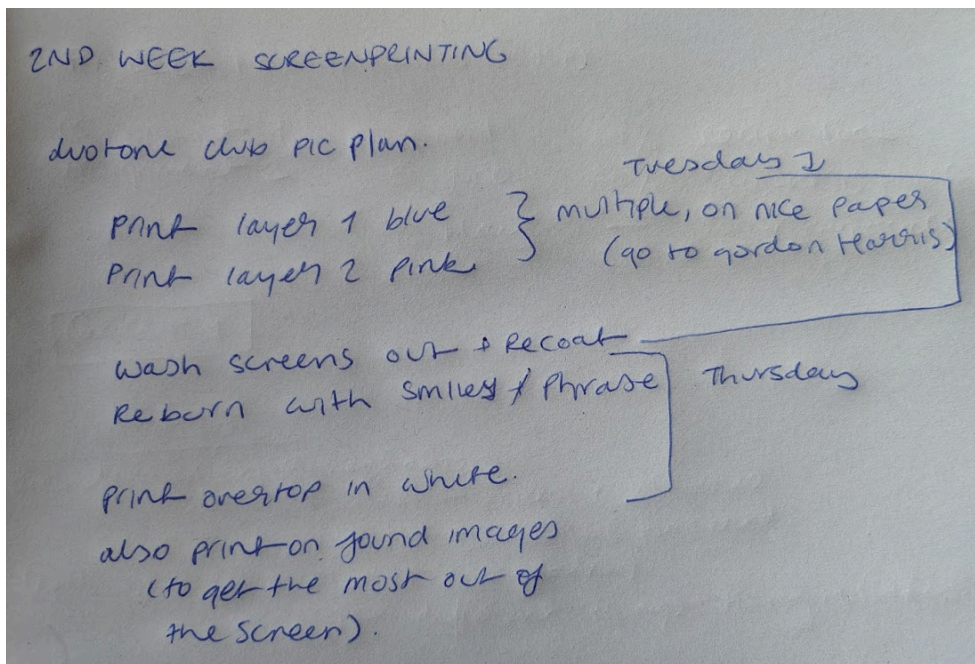 2ND WEEK SCREENPRINTING
duotone club pic plan.
Tuesday
print layer 1 blue } multiple, on nice paper
print layer 2 pink (go to gordon Harris)
wash screens out + Recoat
Reburn with smiley / phrase Thursday
print overtop in white.
also print on found images
(to get the most out of
the screen).